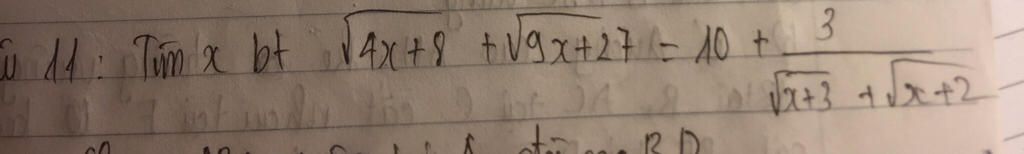 11: Tìm x bt √(4x+8) + √(9x+27) = 10 + 3/(√(x+3) + √(x+2))